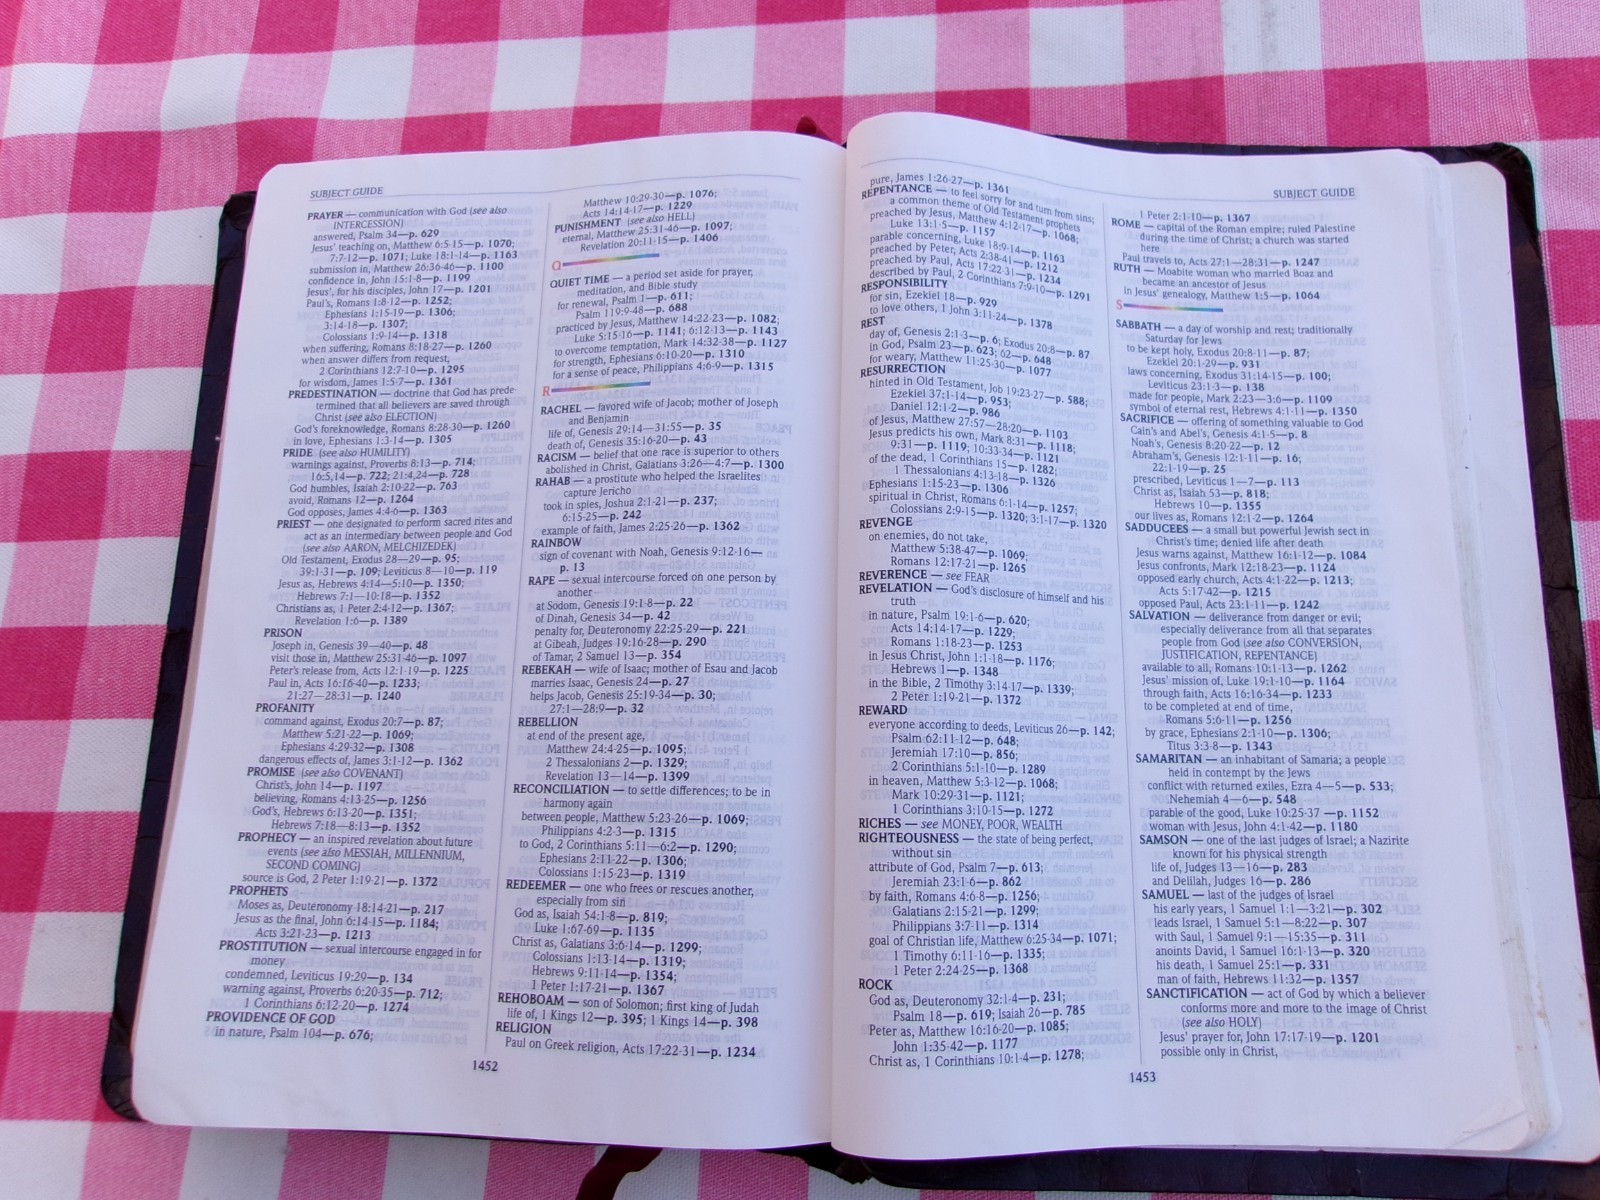 SUBJECT GUIDE
PRAYER — communication with God (see also
INTERCESSION)
answered, Psalm 34—p. 629
Jesus' teaching on, Matthew 6:5-15—p. 1070;
7:7-12—p. 1071; Luke 18:1-14—p. 1163
submission in, Matthew 26:36-46—p. 1100
confidence in, John 15:1-8—p. 1199
Jesus', for his disciples, John 17—p. 1201
Paul's, Romans 1:8-12—p. 1252;
Ephesians 1:15-19—p. 1306;
3:14-18—p. 1307;
Colossians 1:9-14—p. 1318
when suffering, Romans 8:18-27—p. 1260
when answer differs from request,
2 Corinthians 12:7-10—p. 1295
for wisdom, James 1:5-7—p. 1361
PREDESTINATION — doctrine that God has prede-
termined that all believers are saved through
Christ (see also ELECTION)
God's foreknowledge, Romans 8:28-30—p. 1260
in love, Ephesians 1:3-14—p. 1305
PRIDE (see also HUMILITY)
warnings against, Proverbs 8:13—p. 714;
16:5,14—p. 722; 21:4,24—p. 728
God humbles, Isaiah 2:10-22—p. 763
avoid, Romans 12—p. 1264
God opposes, James 4:4-6—p. 1363
PRIEST — one designated to perform sacred rites and
act as an intermediary between people and God
(see also AARON, MELCHIZEDEK)
Old Testament, Exodus 28—29—p. 95;
39:1-31—p. 109; Leviticus 8—10—p. 119
Jesus as, Hebrews 4:14—5:10—p. 1350;
Hebrews 7:1—10:18—p. 1352
Christians as, 1 Peter 2:4-12—p. 1367;
Revelation 1:6—p. 1389
PRISON
Joseph in, Genesis 39—40—p. 48
visit those in, Matthew 25:31-46—p. 1097
Peter's release from, Acts 12:1-19—p. 1225
Paul in, Acts 16:16-40—p. 1233;
21:27—28:31—p. 1240
PROFANITY
command against, Exodus 20:7—p. 87;
Matthew 5:21-22—p. 1069;
Ephesians 4:29-32—p. 1308
dangerous effects of, James 3:1-12—p. 1362
PROMISE (see also COVENANT)
Christ's, John 14—p. 1197
believing, Romans 4:13-25—p. 1256
God's, Hebrews 6:13-20—p. 1351;
Hebrews 7:18—8:13—p. 1352
PROPHECY — an inspired revelation about future
events (see also MESSIAH, MILLENNIUM,
SECOND COMING)
source is God, 2 Peter 1:19-21—p. 1372
PROPHETS
Moses as, Deuteronomy 18:14-21—p. 217
Jesus as the final, John 6:14-15—p. 1184;
Acts 3:21-23—p. 1213
PROSTITUTION — sexual intercourse engaged in for
money
condemned, Leviticus 19:29—p. 134
warning against, Proverbs 6:20-35—p. 712;
1 Corinthians 6:12-20—p. 1274
PROVIDENCE OF GOD
in nature, Psalm 104—p. 676;
Matthew 10:29-30—p. 1076;
Acts 14:14-17—p. 1229
PUNISHMENT (see also HELL)
eternal, Matthew 25:31-46—p. 1097;
Revelation 20:11-15—p. 1406
Q
QUIET TIME — a period set aside for prayer,
meditation, and Bible study
for renewal, Psalm 1—p. 611;
Psalm 119:9-48—p. 688
practiced by Jesus, Matthew 14:22-23—p. 1082;
Luke 5:15-16—p. 1141; 6:12-13—p. 1143
to overcome temptation, Mark 14:32-38—p. 1127
for strength, Ephesians 6:10-20—p. 1310
for a sense of peace, Philippians 4:6-9—p. 1315
R
RACHEL — favored wife of Jacob; mother of Joseph
and Benjamin
life of, Genesis 29:14—31:55—p. 35
death of, Genesis 35:16-20—p. 43
RACISM — belief that one race is superior to others
abolished in Christ, Galatians 3:26—4:7—p. 1300
RAHAB — a prostitute who helped the Israelites
capture Jericho
took in spies, Joshua 2:1-21—p. 237;
6:15-25—p. 242
example of faith, James 2:25-26—p. 1362
RAINBOW
sign of covenant with Noah, Genesis 9:12-16—
p. 13
RAPE — sexual intercourse forced on one person by
another
at Sodom, Genesis 19:1-8—p. 22
of Dinah, Genesis 34—p. 42
penalty for, Deuteronomy 22:25-29—p. 221
at Gibeah, Judges 19:16-28—p. 290
of Tamar, 2 Samuel 13—p. 354
REBEKAH — wife of Isaac; mother of Esau and Jacob
marries Isaac, Genesis 24—p. 27
helps Jacob, Genesis 25:19-34—p. 30;
27:1—28:9—p. 32
REBELLION
at end of the present age,
Matthew 24:4-25—p. 1095;
2 Thessalonians 2—p. 1329;
Revelation 13—14—p. 1399
RECONCILIATION — to settle differences; to be in
harmony again
between people, Matthew 5:23-26—p. 1069;
Philippians 4:2-3—p. 1315
to God, 2 Corinthians 5:11—6:2—p. 1290;
Ephesians 2:11-22—p. 1306;
Colossians 1:15-23—p. 1319
REDEEMER — one who frees or rescues another,
especially from sin
God as, Isaiah 54:1-8—p. 819;
Luke 1:67-69—p. 1135
Christ as, Galatians 3:6-14—p. 1299;
Colossians 1:13-14—p. 1319;
Hebrews 9:11-14—p. 1354;
1 Peter 1:17-21—p. 1367
REHOBOAM — son of Solomon; first king of Judah
life of, 1 Kings 12—p. 395; 1 Kings 14—p. 398
RELIGION
Paul on Greek religion, Acts 17:22-31—p. 1234
1452
SUBJECT GUIDE
pure, James 1:26-27—p. 1361
REPENTANCE — to feel sorry for and turn from sins;
a common theme of Old Testament prophets
preached by Jesus, Matthew 4:12-17—p. 1068;
Luke 13:1-5—p. 1157
parable concerning, Luke 18:9-14—p. 1163
preached by Peter, Acts 2:38-41—p. 1212
preached by Paul, Acts 17:22-31—p. 1234
described by Paul, 2 Corinthians 7:9-10—p. 1291
RESPONSIBILITY
for sin, Ezekiel 18—p. 929
to love others, 1 John 3:11-24—p. 1378
REST
day of, Genesis 2:1-3—p. 6; Exodus 20:8—p. 87
in God, Psalm 23—p. 623; 62—p. 648
for weary, Matthew 11:25-30—p. 1077
RESURRECTION
hinted in Old Testament, Job 19:23-27—p. 588;
Ezekiel 37:1-14—p. 953;
Daniel 12:1-2—p. 986
of Jesus, Matthew 27:57—28:20—p. 1103
Jesus predicts his own, Mark 8:31—p. 1118;
9:31—p. 1119; 10:33-34—p. 1121
of the dead, 1 Corinthians 15—p. 1282;
1 Thessalonians 4:13-18—p. 1326
Ephesians 1:15-23—p. 1306
spiritual in Christ, Romans 6:1-14—p. 1257;
Colossians 2:9-15—p. 1320; 3:1-17—p. 1320
REVENGE
on enemies, do not take,
Matthew 5:38-47—p. 1069;
Romans 12:17-21—p. 1265
REVERENCE — see FEAR
REVELATION — God's disclosure of himself and his
truth
in nature, Psalm 19:1-6—p. 620;
Acts 14:14-17—p. 1229;
Romans 1:18-23—p. 1253
in Jesus Christ, John 1:1-18—p. 1176;
Hebrews 1—p. 1348
in the Bible, 2 Timothy 3:14-17—p. 1339;
2 Peter 1:19-21—p. 1372
REWARD
everyone according to deeds, Leviticus 26—p. 142;
Psalm 62:11-12—p. 648;
Jeremiah 17:10—p. 856;
2 Corinthians 5:1-10—p. 1289
in heaven, Matthew 5:3-12—p. 1068;
Mark 10:29-31—p. 1121;
1 Corinthians 3:10-15—p. 1272
RICHES — see MONEY, POOR, WEALTH
RIGHTEOUSNESS — the state of being perfect,
without sin
attribute of God, Psalm 7—p. 613;
Jeremiah 23:1-6—p. 862
by faith, Romans 4:6-8—p. 1256;
Galatians 2:15-21—p. 1299;
Philippians 3:7-11—p. 1314
goal of Christian life, Matthew 6:25-34—p. 1071;
1 Timothy 6:11-16—p. 1335;
1 Peter 2:24-25—p. 1368
ROCK
God as, Deuteronomy 32:1-4—p. 231;
Psalm 18—p. 619; Isaiah 26—p. 785
Peter as, Matthew 16:16-20—p. 1085;
John 1:35-42—p. 1177
Christ as, 1 Corinthians 10:1-4—p. 1278;
1 Peter 2:1-10—p. 1367
ROME — capital of the Roman empire; ruled Palestine
during the time of Christ; a church was started
here
Paul travels to, Acts 27:1—28:31—p. 1247
RUTH — Moabite woman who married Boaz and
became an ancestor of Jesus
in Jesus' genealogy, Matthew 1:5—p. 1064
S
SABBATH — a day of worship and rest; traditionally
Saturday for Jews
to be kept holy, Exodus 20:8-11—p. 87;
Ezekiel 20:1-29—p. 931
laws concerning, Exodus 31:14-15—p. 100;
Leviticus 23:1-3—p. 138
made for people, Mark 2:23—3:6—p. 1109
symbol of eternal rest, Hebrews 4:1-11—p. 1350
SACRIFICE — offering of something valuable to God
Cain's and Abel's, Genesis 4:1-5—p. 8
Noah's, Genesis 8:20-22—p. 12
Abraham's, Genesis 12:1-11—p. 16;
22:1-19—p. 25
prescribed, Leviticus 1—7—p. 113
Christ as, Isaiah 53—p. 818;
Hebrews 10—p. 1355
our lives as, Romans 12:1-2—p. 1264
SADDUCEES — a small but powerful Jewish sect in
Christ's time; denied life after death
Jesus warns against, Matthew 16:1-12—p. 1084
Jesus confronts, Mark 12:18-23—p. 1124
opposed early church, Acts 4:1-22—p. 1213;
Acts 5:17-42—p. 1215
opposed Paul, Acts 23:1-11—p. 1242
SALVATION — deliverance from danger or evil;
especially deliverance from all that separates
people from God (see also CONVERSION,
JUSTIFICATION, REPENTANCE)
available to all, Romans 10:1-13—p. 1262
Jesus' mission of, Luke 19:1-10—p. 1164
through faith, Acts 16:16-34—p. 1233
to be completed at end of time,
Romans 5:6-11—p. 1256
by grace, Ephesians 2:1-10—p. 1306;
Titus 3:3-8—p. 1343
SAMARITAN — an inhabitant of Samaria; a people
held in contempt by the Jews
conflict with returned exiles, Ezra 4—5—p. 533;
Nehemiah 4—6—p. 548
parable of the good, Luke 10:25-37 —p. 1152
woman with Jesus, John 4:1-42—p. 1180
SAMSON — one of the last judges of Israel; a Nazirite
known for his physical strength
life of, Judges 13—16—p. 283
and Delilah, Judges 16—p. 286
SAMUEL — last of the judges of Israel
his early years, 1 Samuel 1:1—3:21—p. 302
leads Israel, 1 Samuel 5:1—8:22—p. 307
with Saul, 1 Samuel 9:1—15:35—p. 311
anoints David, 1 Samuel 16:1-13—p. 320
his death, 1 Samuel 25:1—p. 331
man of faith, Hebrews 11:32—p. 1357
SANCTIFICATION — act of God by which a believer
conforms more and more to the image of Christ
(see also HOLY)
Jesus' prayer for, John 17:17-19—p. 1201
possible only in Christ,
1453